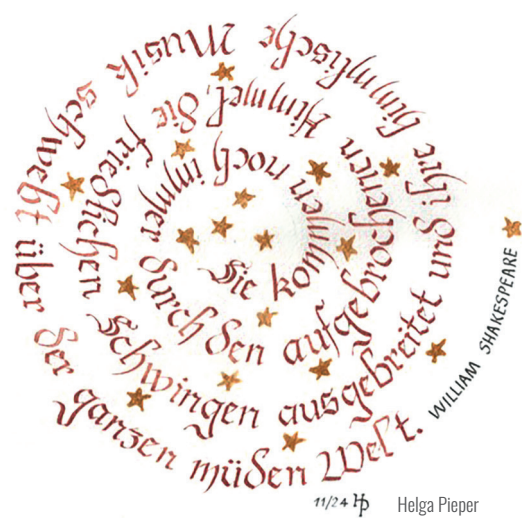 Sie kommen noch immer durch den aufgebrochenen Himmel, die friedlichen Schwingen ausgebreitet und ihre himmlische Musik schwebt über der ganzen müden Welt.
WILLIAM SHAKESPEARE
11/24 HP
Helga Pieper